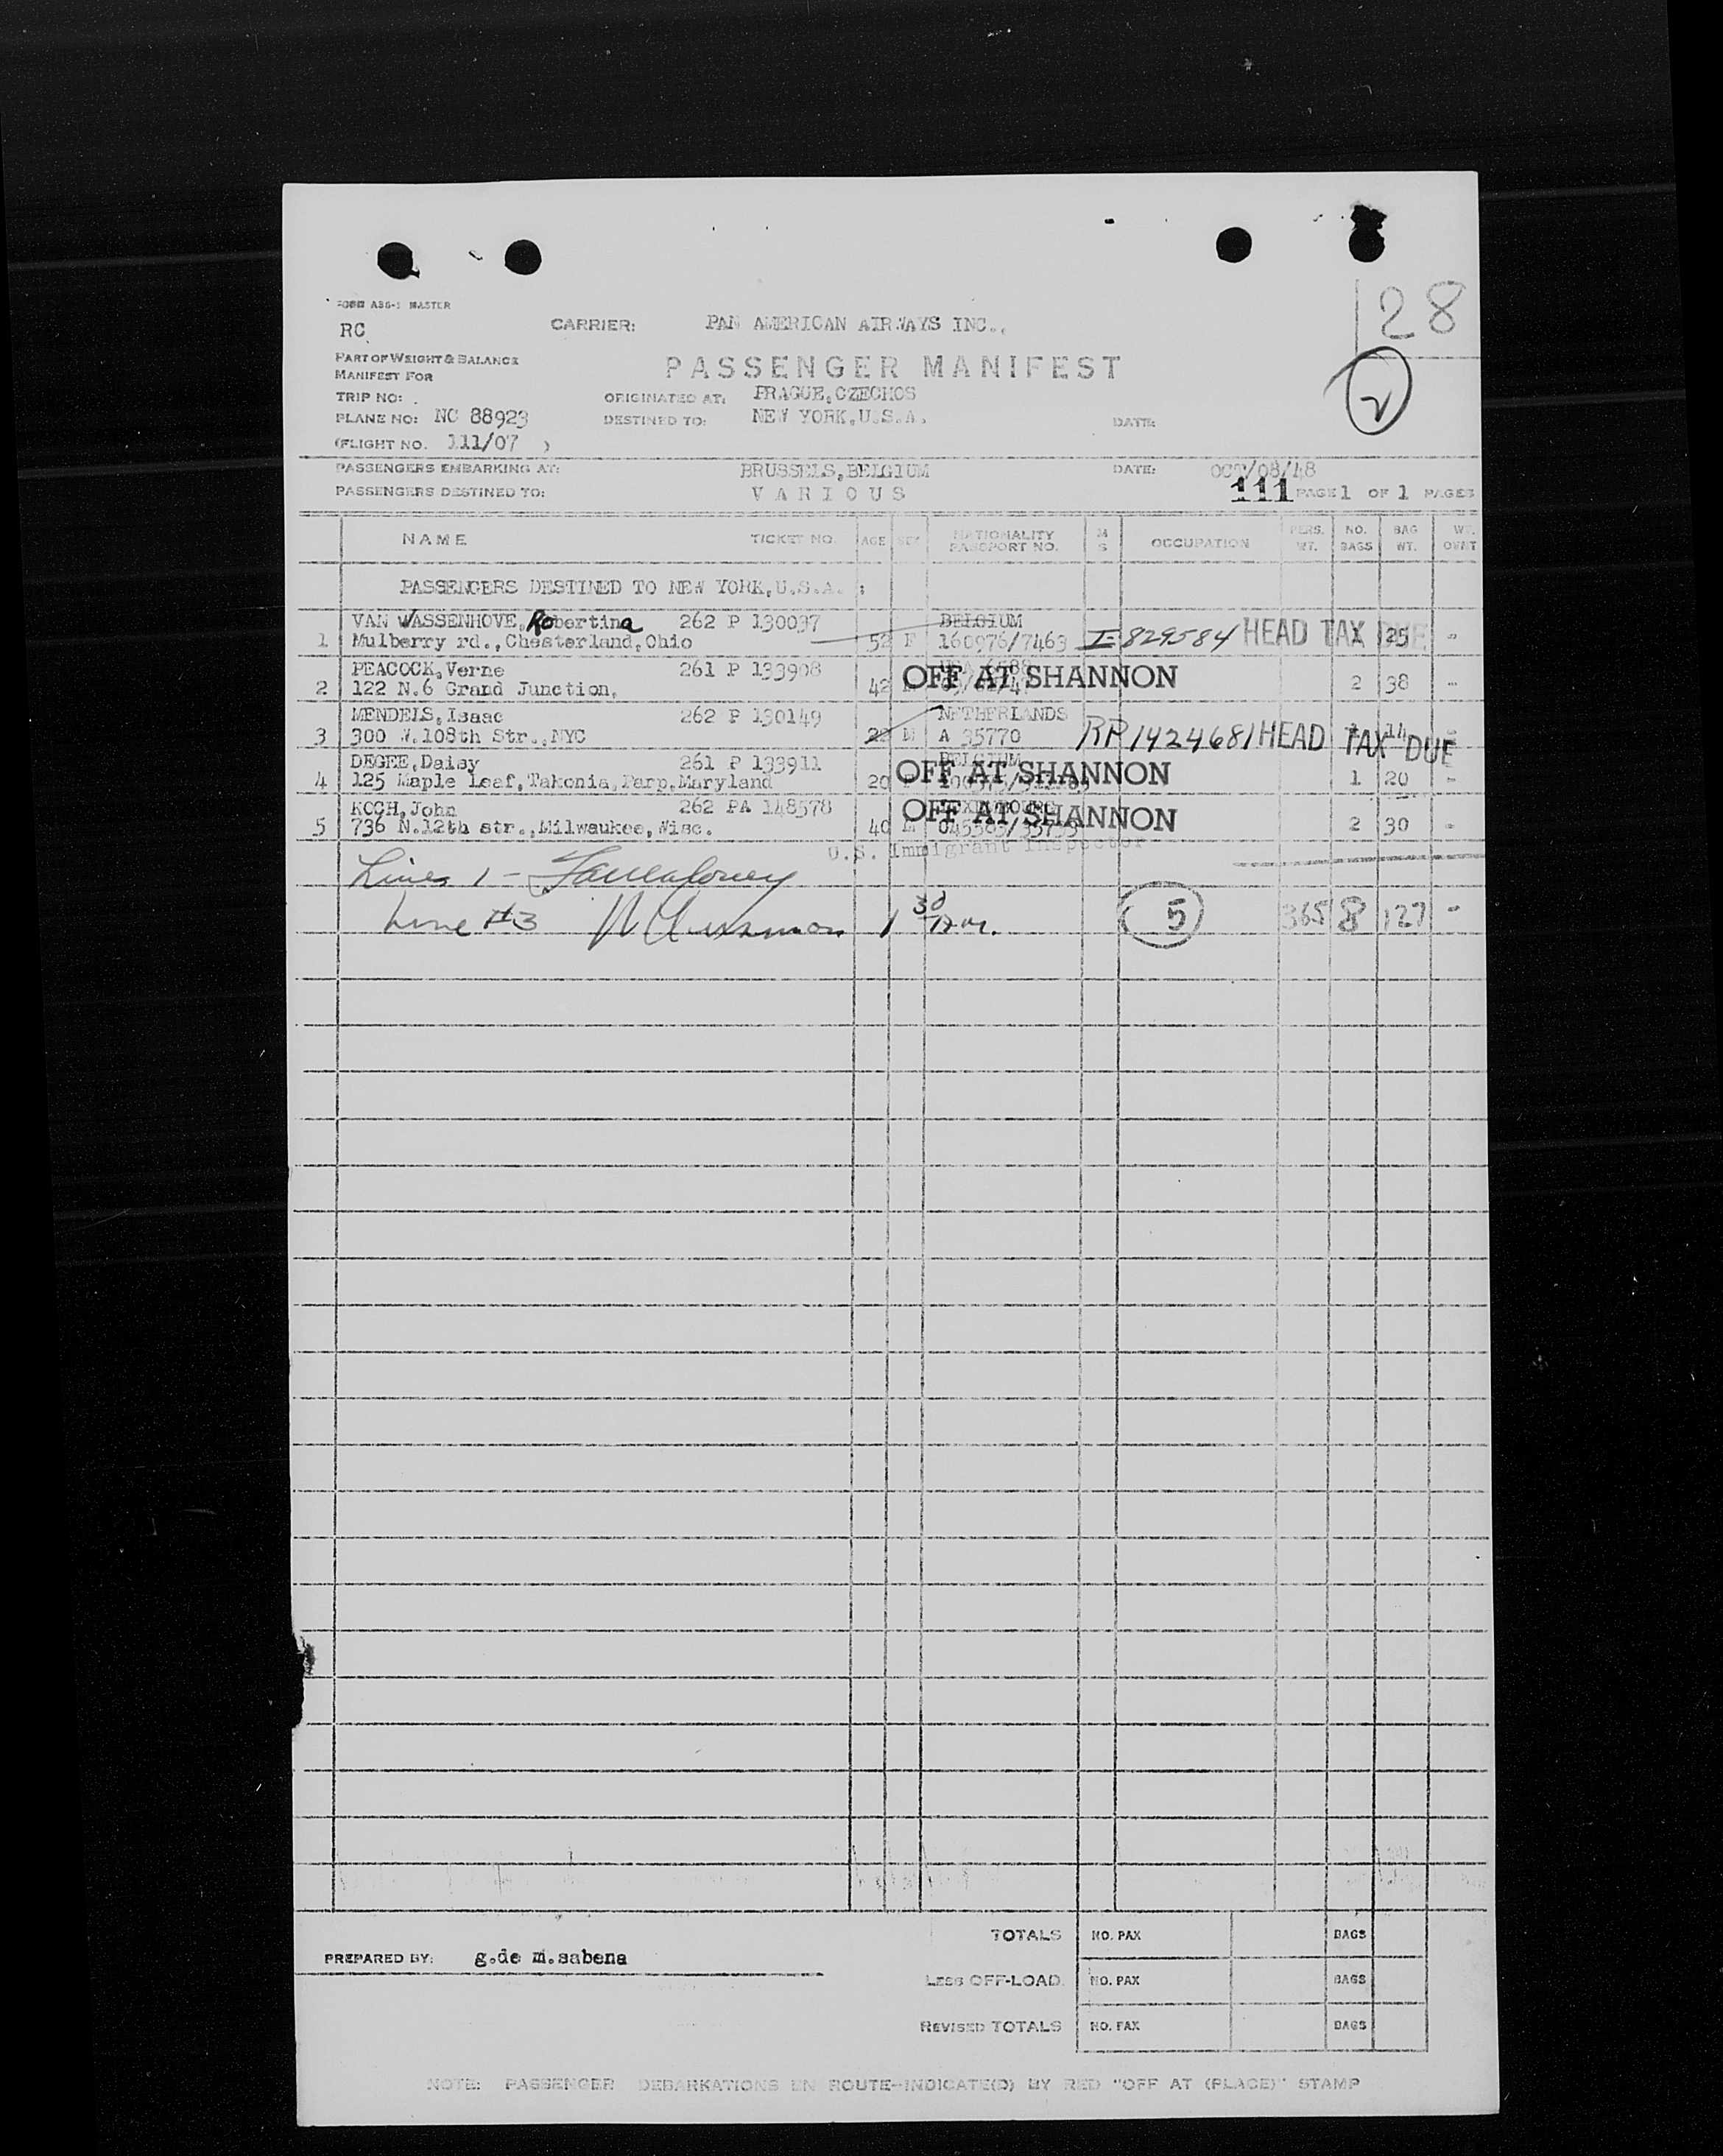 FORM ABG-1 MASTER
RC CARRIER: PAN AMERICAN AIRWAYS INC.,
28
PART OF WEIGHT & BALANCE
MANIFEST FOR
PASSENGER MANIFEST
2
TRIP NO: . ORIGINATED AT: PRAGUE,CZECHOS
PLANE NO: NC 88923 DESTINED TO: NEW YORK,U.S.A. DATE:
(FLIGHT NO. 111/07 )
PASSENGERS EMBARKING AT: BRUSSELS,BELGIUM DATE: OCT/08/48
PASSENGERS DESTINED TO: VARIOUS 111 PAGE 1 OF 1 PAGES
NAME TICKET NO. AGE SEX NATIONALITY PASSPORT NO. M S OCCUPATION PERS. WT. NO. BAGS BAG WT. WT.
PASSENGERS DESTINED TO NEW YORK,U.S.A. :
VAN WASSENHOVE,Robertina 262 P 130037 BELGIUM
1 Mulberry rd.,Chesterland,Ohio 52 F 160976/7463 I-829584 HEAD TAX DUE 25 -
PEACOCK,Verne 261 P 133908
2 122 N.6 Grand Junction, 42 OFF AT SHANNON 2 38 -
MENDELS,Isaac 262 P 130149 NETHERLANDS
3 300 W.108th Str.,NYC 22 M A 35770 RP 1424681 HEAD TAX DUE 14
DEGEE,Daisy 261 P 133911 BELGIUM
4 125 Maple Leaf,Takonia,Parp,Maryland 20 OFF AT SHANNON 1 20 -
KOCH,John 262 PA 148578
5 736 N.12th str.,Milwaukee,Wisc. 40 OFF AT SHANNON 2 30 -
U.S. Immigrant Inspector
Lines 1 -
Line #3 1 (5) 365 8 127 -
TOTALS NO. PAX BAGS
PREPARED BY: g.de m.sabena
LESS OFF-LOAD NO. PAX BAGS
REVISED TOTALS NO. PAX BAGS
NOTE: PASSENGER DEBARKATIONS EN ROUTE-INDICATE(D) BY RED "OFF AT (PLACE)" STAMP